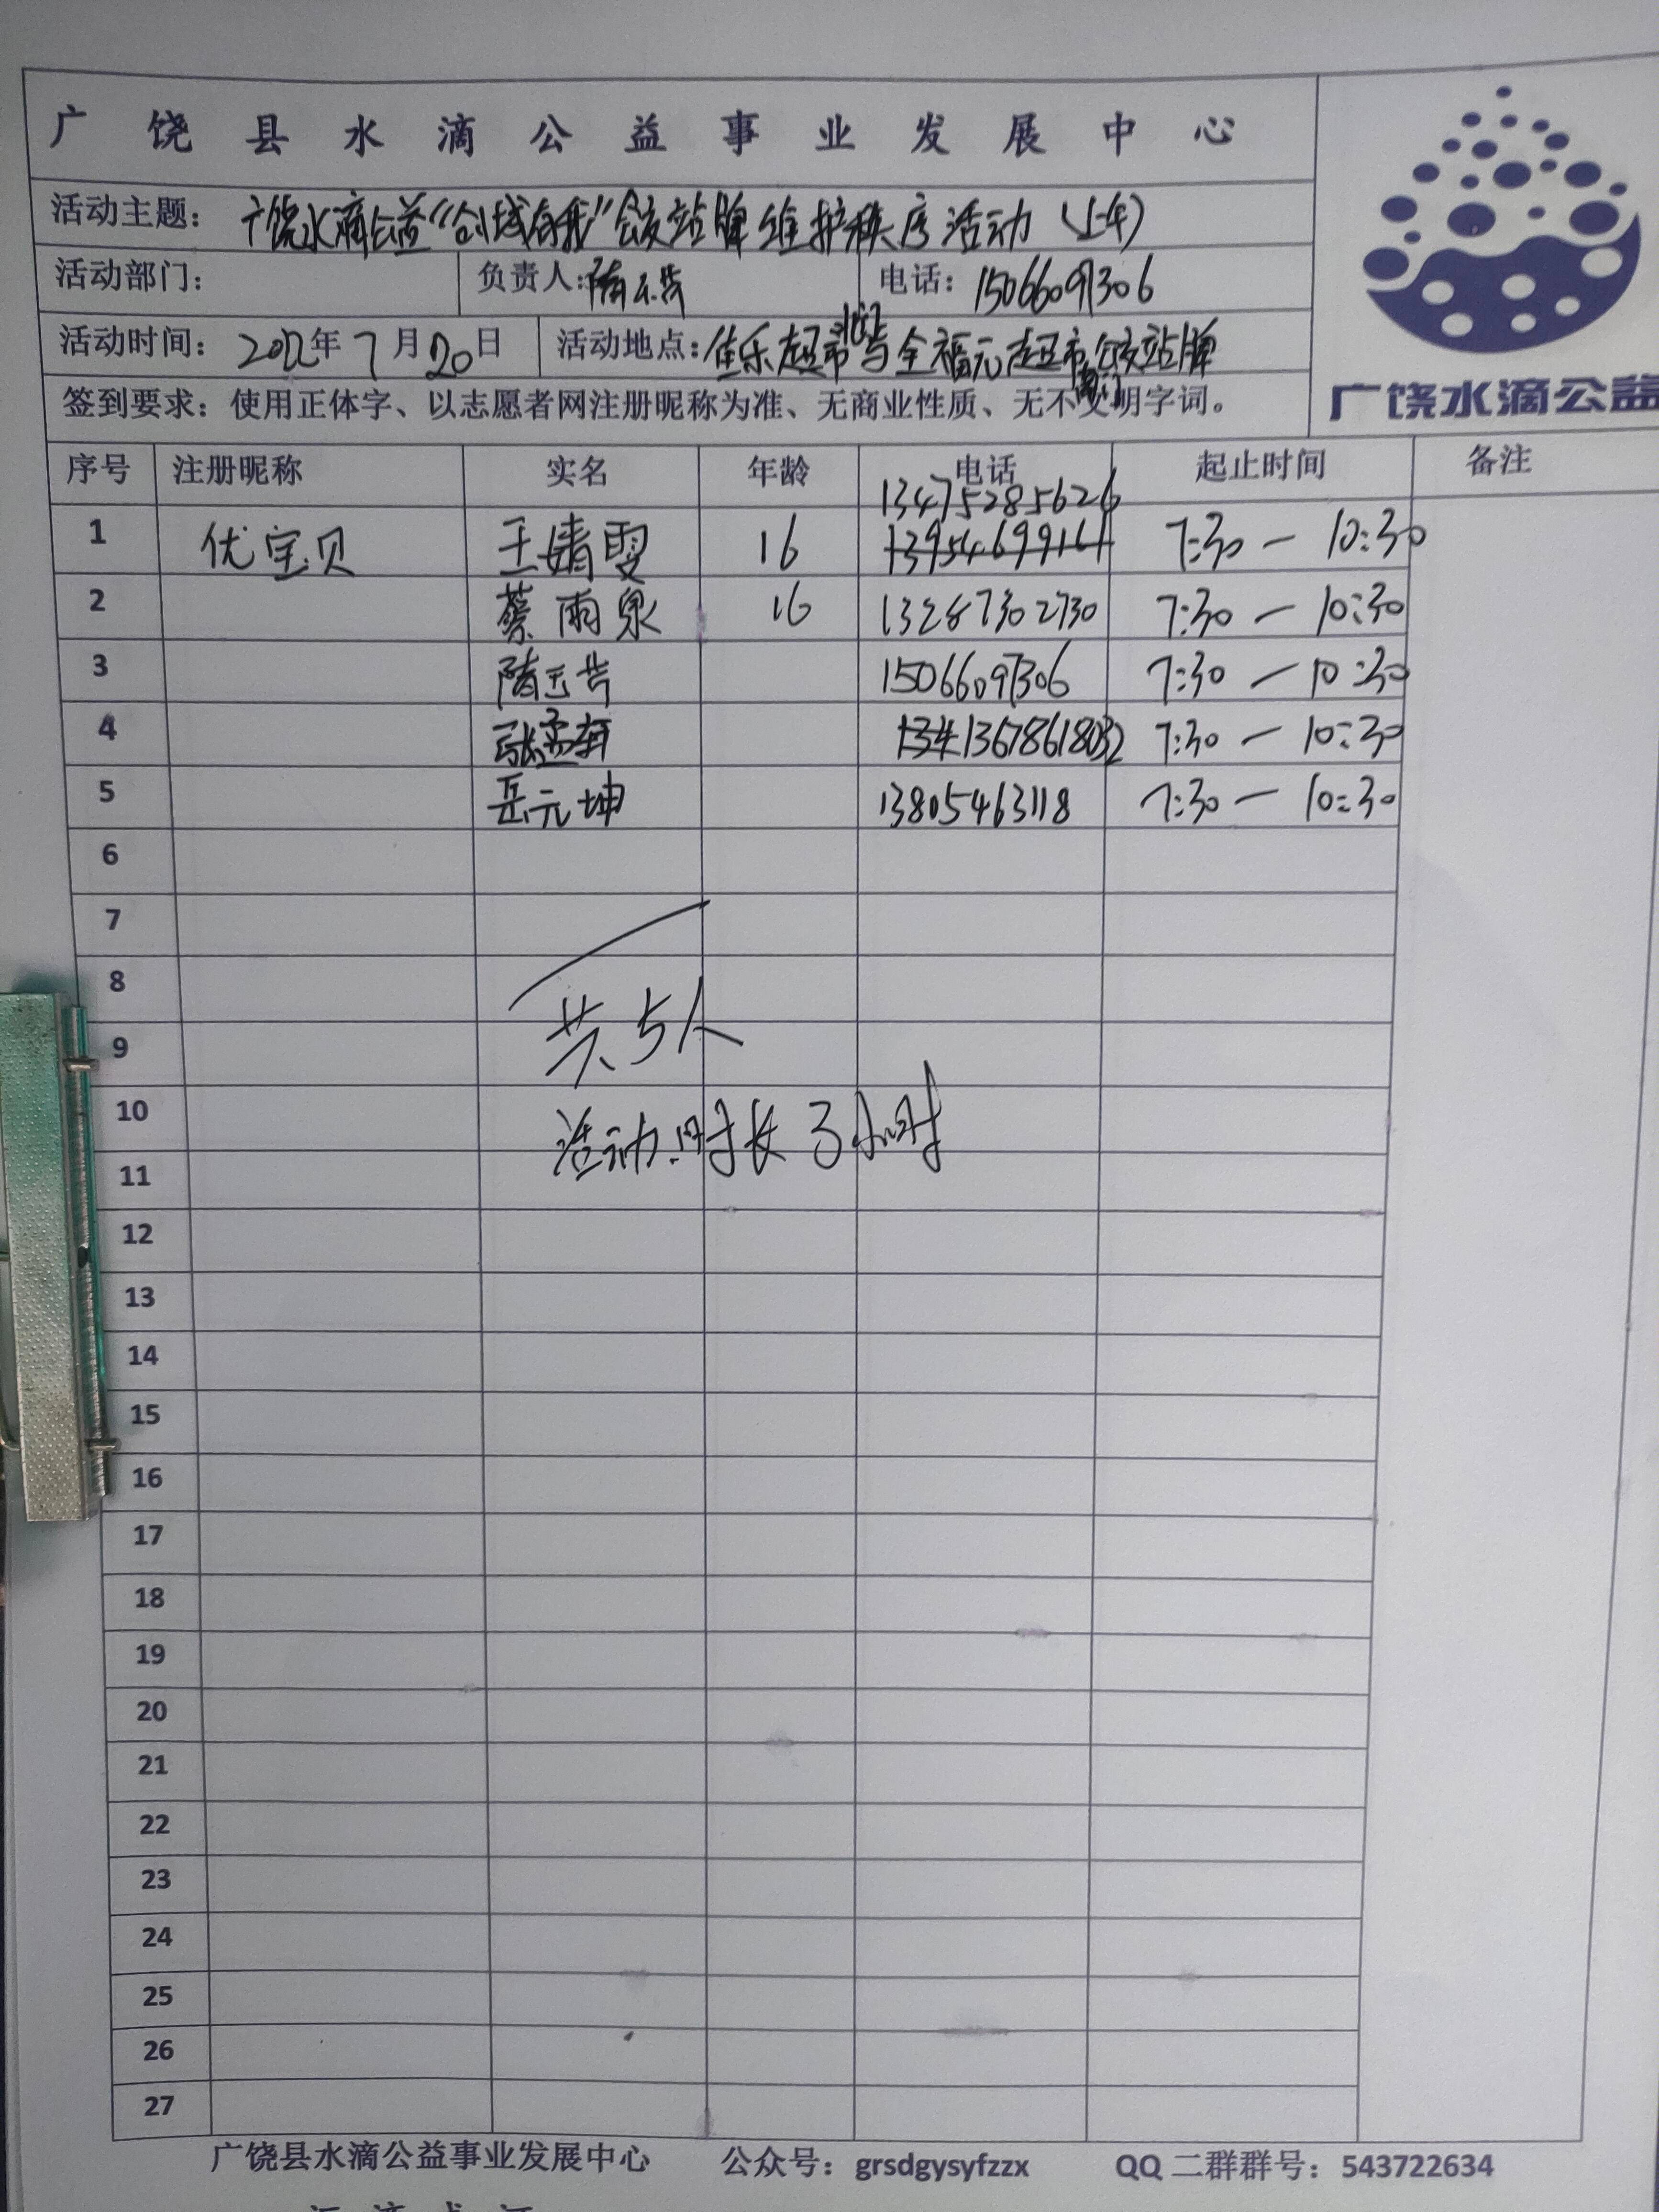 广饶县水滴公益事业发展中心
活动主题：广饶水滴公益“创城有我”公交站牌维护秩序活动（上午）
活动部门： 负责人：隋玉芳 电话：15066091306
活动时间：2022年7月20日 活动地点：佳乐超市北门与全福元超市南门公交站牌
签到要求：使用正体字、以志愿者网注册昵称为准、无商业性质、无不文明字词。
广饶水滴公益
序号 注册昵称 实名 年龄 电话 起止时间 备注
13475285626
1 优宝贝 王婧雯 16 13954699161 7:30 — 10:30
2 蔡雨泉 16 13287302730 7:30 — 10:30
3 隋玉芳 15066091306 7:30 — 10:30
4 张孟轩 134 13678618032 7:30 — 10:30
5 岳元坤 13805463118 7:30 — 10:30
6
7
8
共5人
9
10
活动时长3小时
11
12
13
14
15
16
17
18
19
20
21
22
23
24
25
26
27
广饶县水滴公益事业发展中心 公众号：grsdgysyfzzx QQ二群群号：543722634